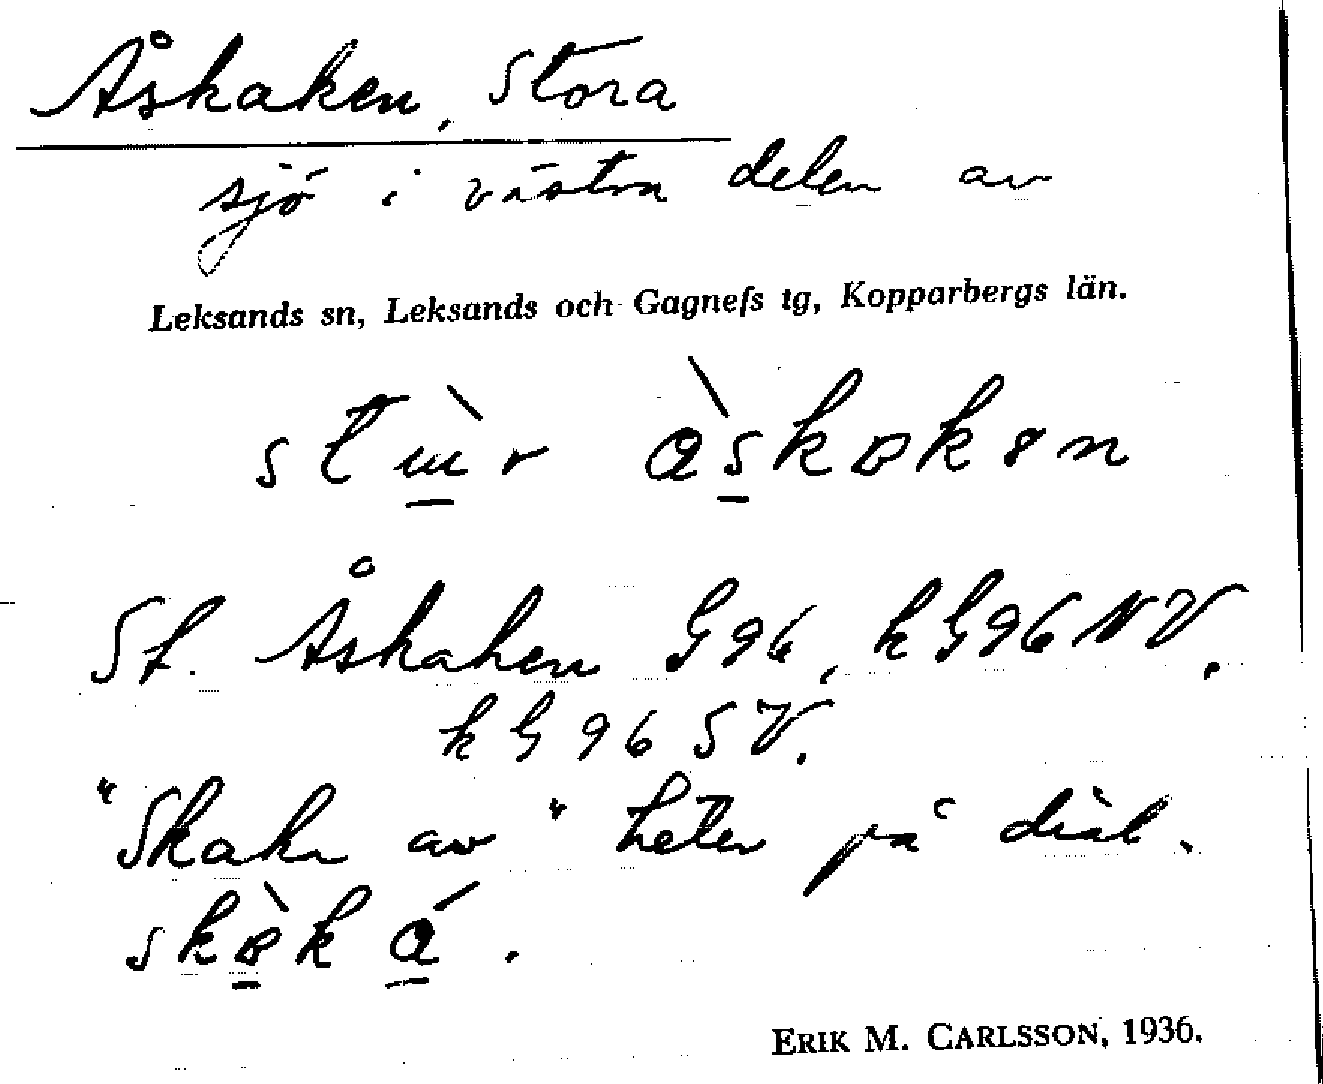 Åskaken, Stora
sjö i västra delen av
Leksands sn, Leksands och Gagnefs tg, Kopparbergs län.
St. Åskaken G96, k G96 NV.
k G 96 SV.
"Skaka av" heter på dial.
ERIK M. CARLSSON, 1936.